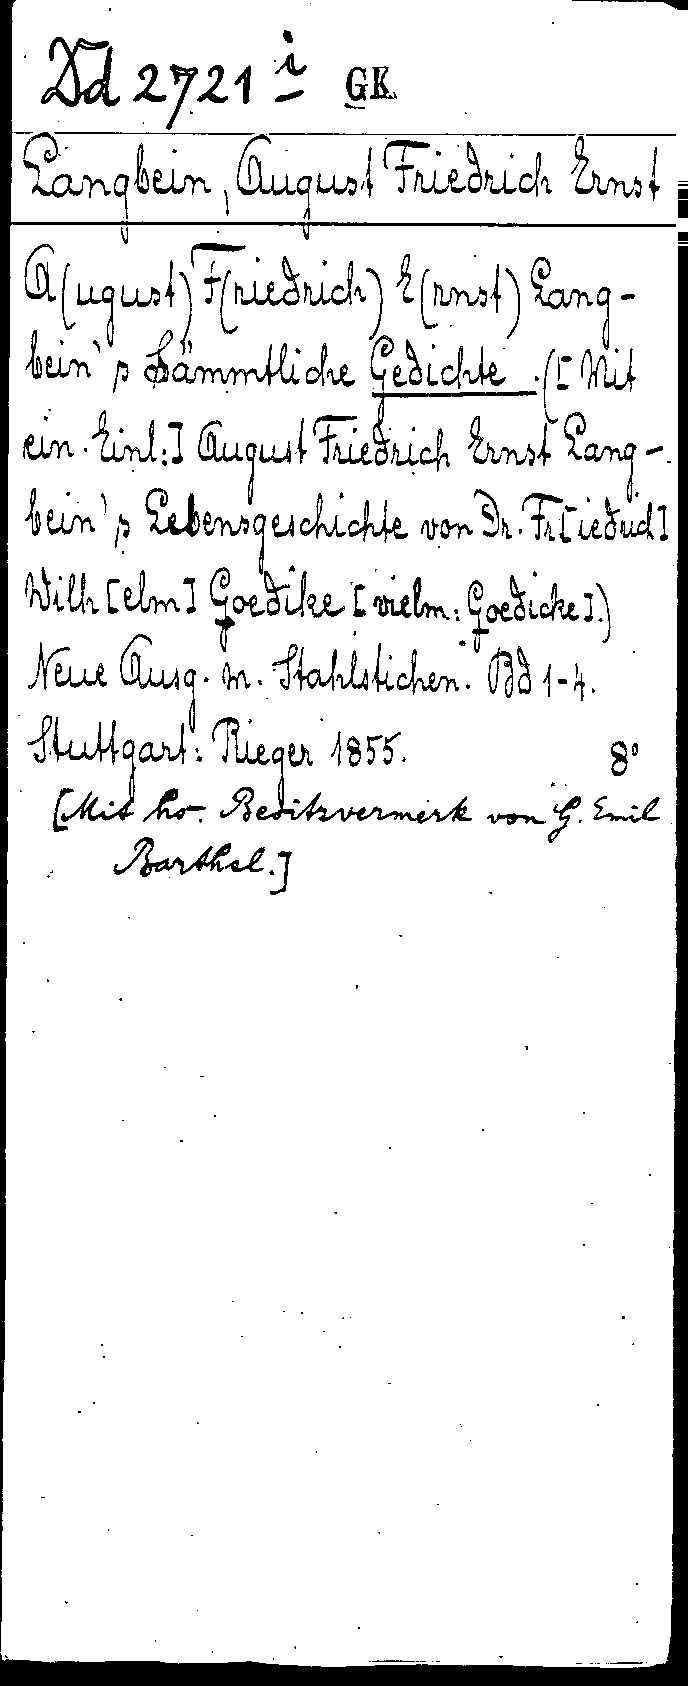 Dd 2721 i GK
Langbein, August Friedrich Ernst
A(ugust) F(riedrich) E(rnst) Lang-
bein's Sämmtliche Gedichte. ([Mit
ein. Einl:] August Friedrich Ernst Lang-
bein's Lebensgeschichte von Dr. Fr[iedrich]
Wilh[elm] Goedike [vielm: Goedicke].)
Neue Ausg. m. Stahlstichen. Bd 1-4.
Stuttgart: Rieger 1855. 8°
[Mit hs. Besitzvermerk von G. Emil
Barthel.]